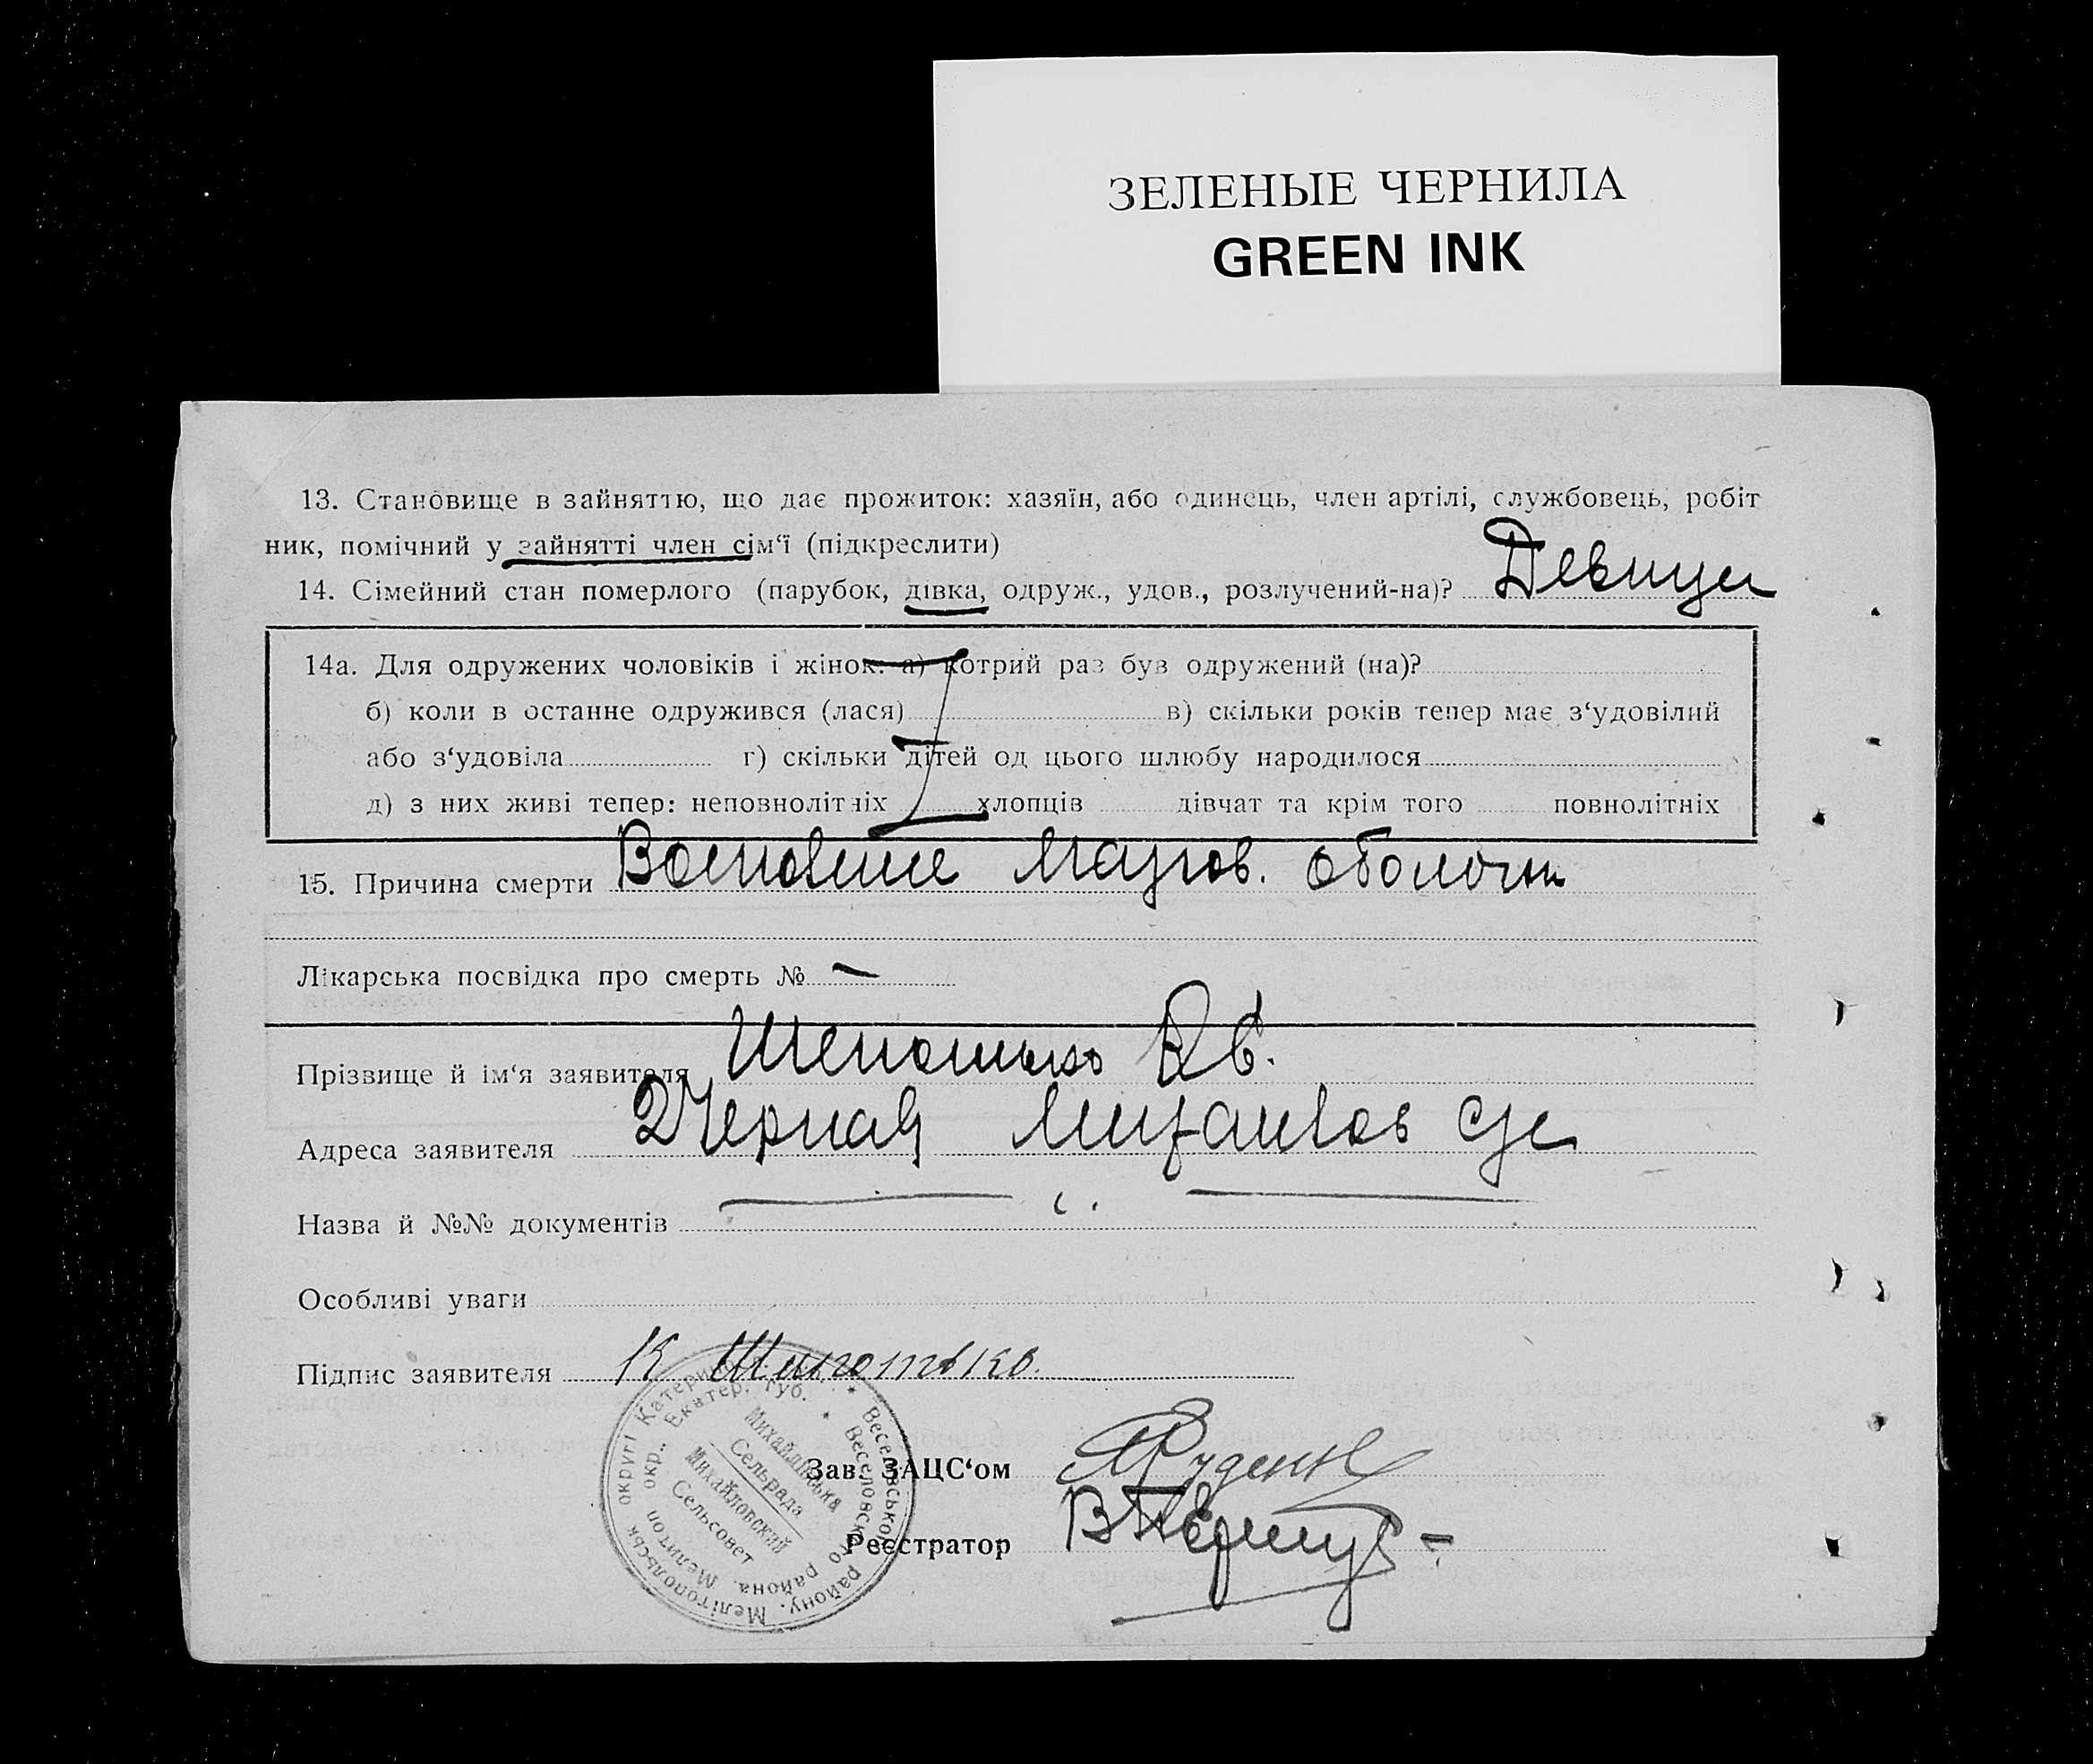 ЗЕЛЕНЫЕ ЧЕРНИЛА
GREEN INK
13. Становище в зайняттю, що дає прожиток: хазяїн, або одинець, член артілі, службовець, робіт
ник, помічний у зайнятті член сім‘ї (підкреслити)
14. Сімейний стан померлого (парубок, дівка, одруж., удов., розлучений-на)? Девица
14а. Для одружених чоловіків і жінок: а) котрий раз був одружений (на)?
б) коли в останнє одружився (лася) в) скільки років тепер має з‘удовілий
або з‘удовіла г) скільки дітей од цього шлюбу народилося
д) з них живі тепер: неповнолітніх хлопців дівчат та крім того повнолітніх
15. Причина смерти мазгов. оболочки
Лікарська посвідка про смерть № —
Прізвище й ім‘я заявителя
Адреса заявителя
Назва й №№ документів
Особливі уваги
Підпис заявителя
Зав. ЗАЦС‘ом
Реєстратор
Веселівського району, Мелітопольськ округі Катерин
Веселовского района, Мелитоп окр., Екатер. губ.
Михайлівська
Сельрада
Михайловский
Сельсовет